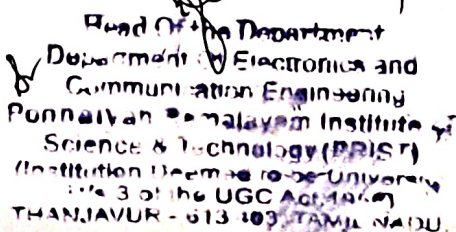 Head Of the Department
Department of Electronics and
Communication Engineering
Ponnaiyah Ramajayam Institute of
Science & Technology (PRIST)
(Institution Deemed to-be-University
3 of the UGC Act
THANJAVUR - 613 403, TAMIL NADU.